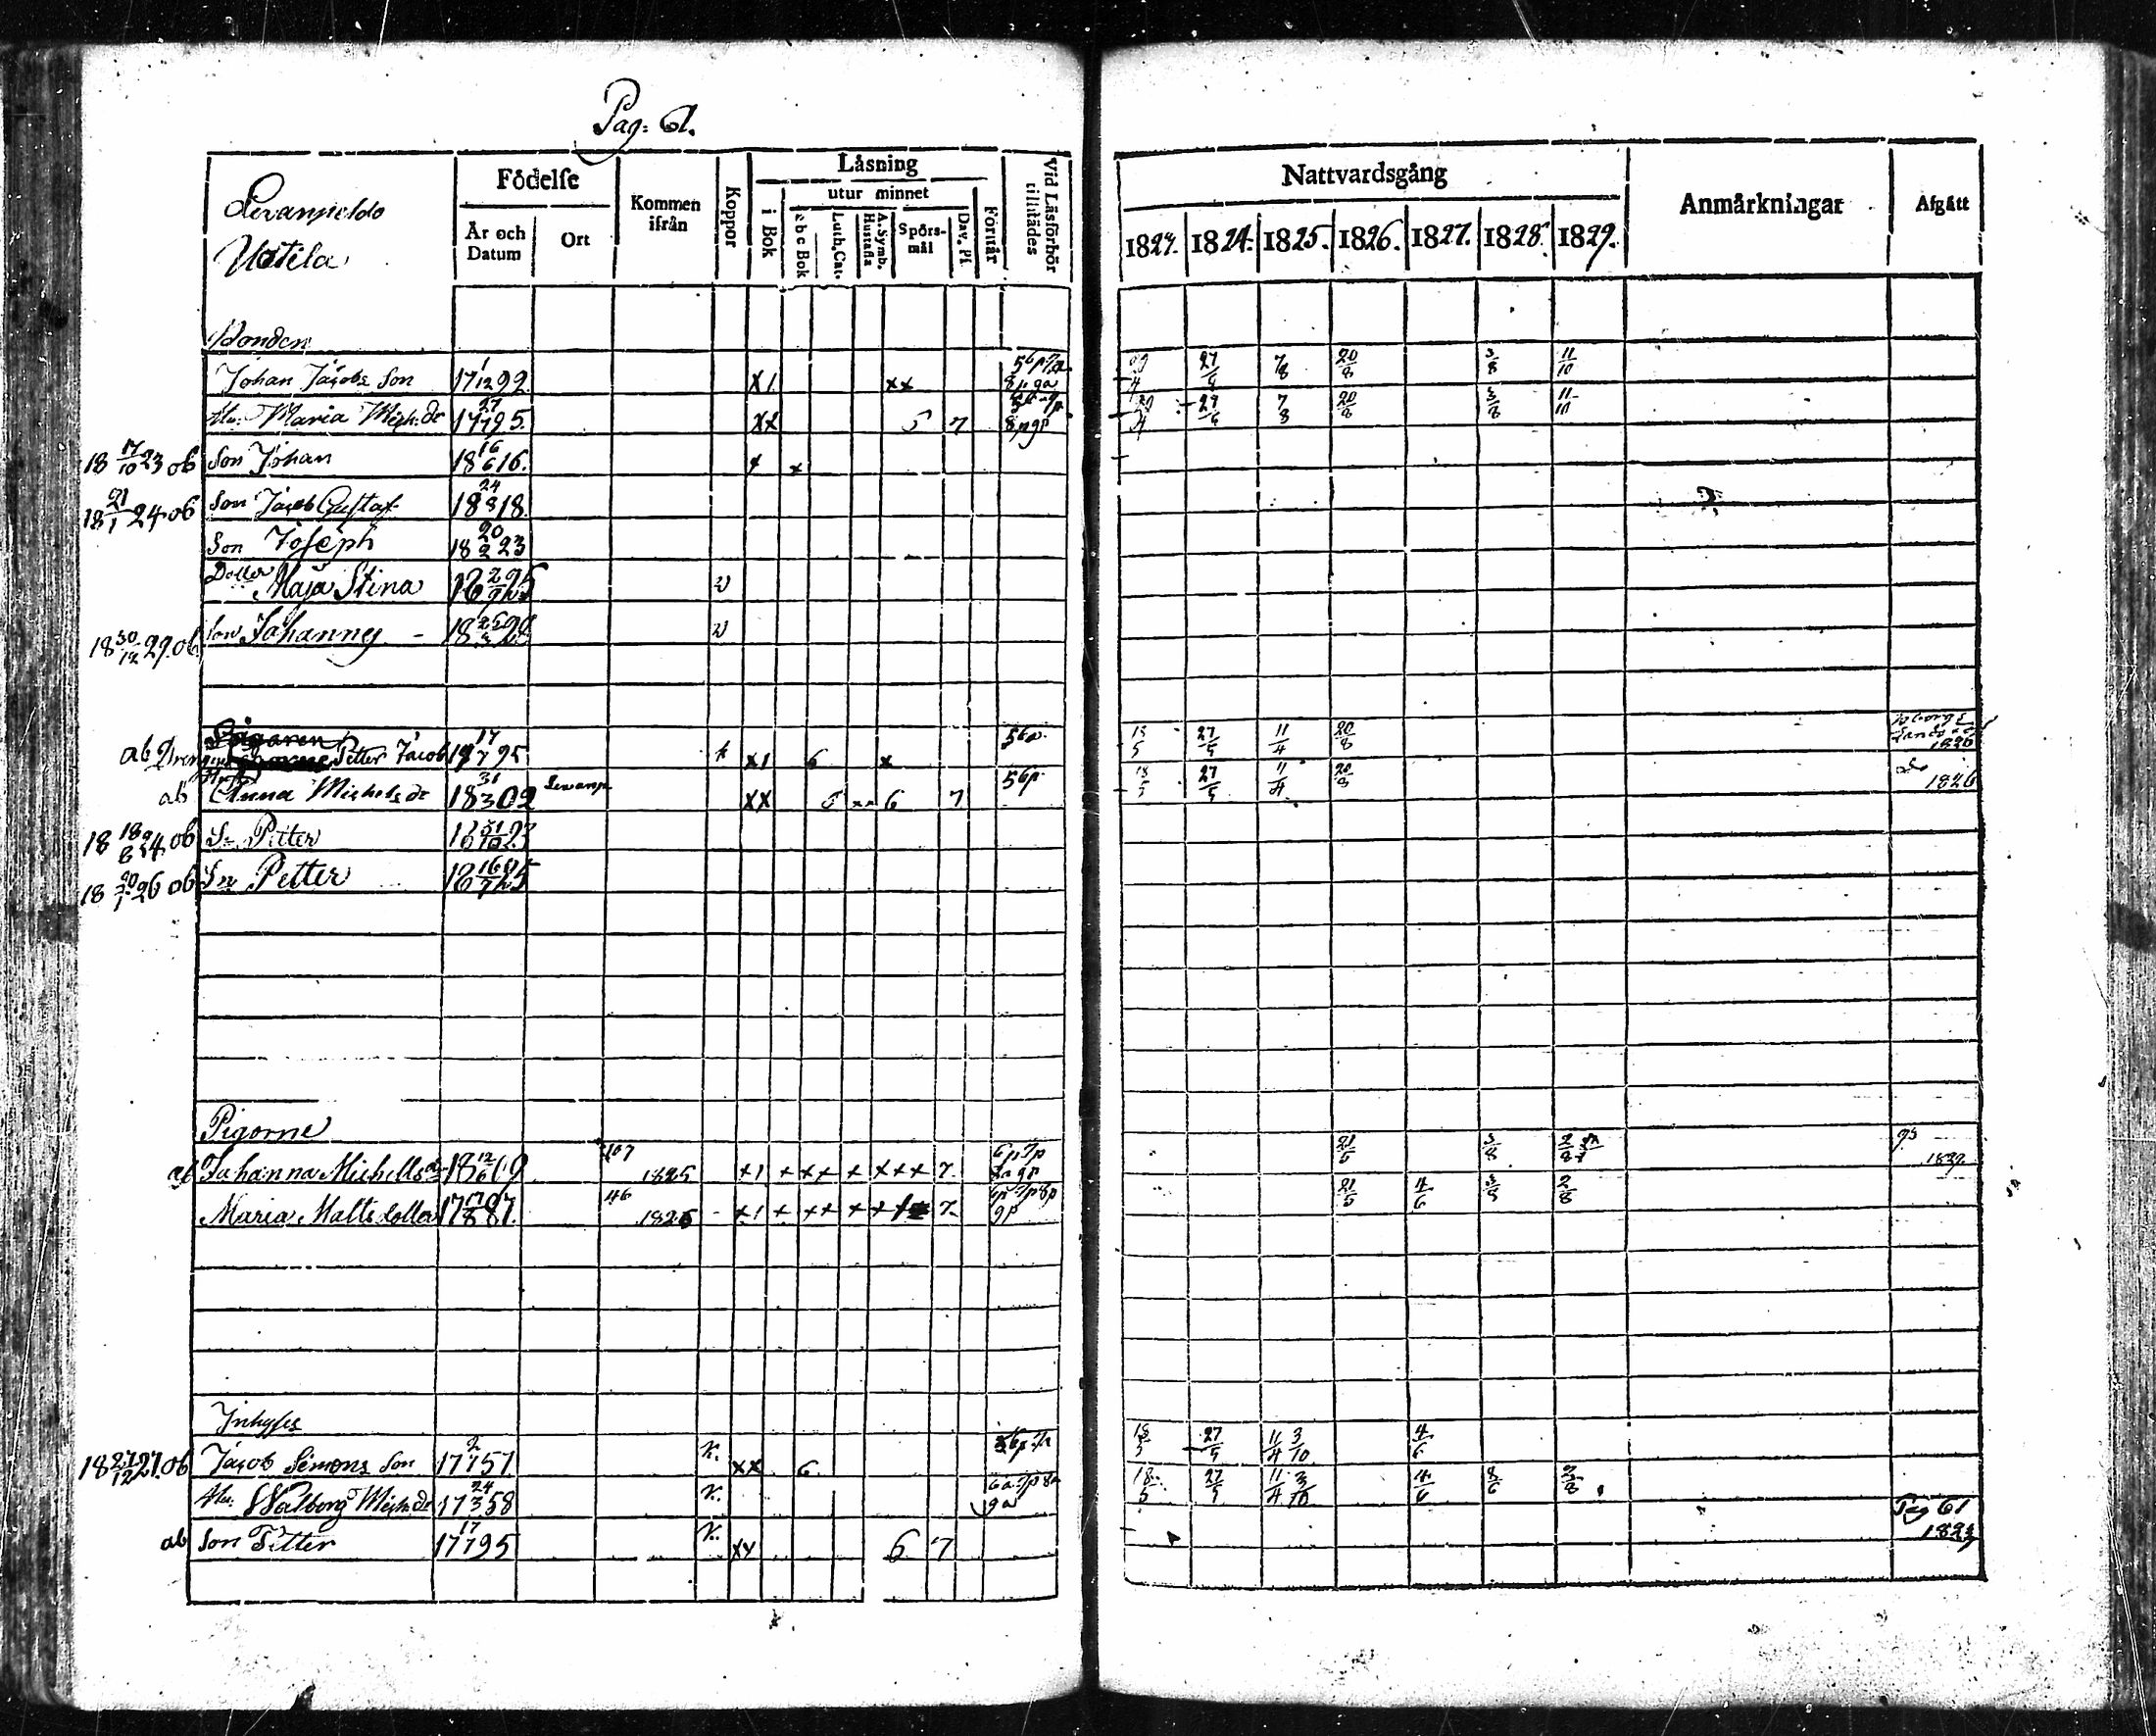 Pag: 61.
Levanpeldo
Uotila
Födelse
År och Datum
Ort
Kommen ifrån
Koppor
Låsning
i Bok
utur minnet
abc Bok
Luth. Cat.
A. Symb. Hustafla
Spörs-mål
Dav. Ps.
Förstår
Vid Läsförhör tillstädes
Nattvardsgång
1823. 1824. 1825. 1826. 1827. 1828. 1829.
Anmärkningar
Afgått
Bonden
Johan Jacobs Son 17 1/12 92. X1 xx 27/5 7/8 20/8 3/8 11/10
Hu. Maria Mich. dr 17 27/7 95. XX 5 7 27/5 7/8 20/8 3/8 11/10
18 17/10 23 ob Son Johan 18 16/6 16. x
18 21/1 24 ob Son Jacob Gustaf 18 24/8 18.
Son Joseph 18 20/2 23
Dotter Maja Stina 18 25 v
18 30/12 29. ob Son Johannes - 18 v
ab Dreng Petter Jacob 17 17/7 95 x1 6 x 27/5 11/4 20/8 1826
ab Anna Michels dr 18 31/3 02 XX 6 7 56p. 18/5 27/5 11/4 20/8 do 1826
18 18/8 24 ob Sn Petter 18 31/10 23
18 20/1 26 ob Sn Petter 18 16/7 25
Pigorne
ab Johanna Michels dr 18 12/6 09 107 1825 x1 + ++ + +++ 7 6p7p 21/5 3/8 2/8 95 1829
Maria Matts dotter 17 17/8 87. 46 1826 - x1 + ++ ++ 7 9p 21/5 4/6 3/8 2/8
Inhyses
18 27/12 27. ob Jacob Simons Son 17 2/7 57 K. XX 6 18/5 27/5 11/4 3/10 4/6
Hu. Walborg Mich. dr 17 24/3 58 K. 9a 18/5 27/5 11/4 3/10 4/6 8/6 2/8
ab Son Petter 17 17/7 95 K. XX 6 7 Pag 61 1823